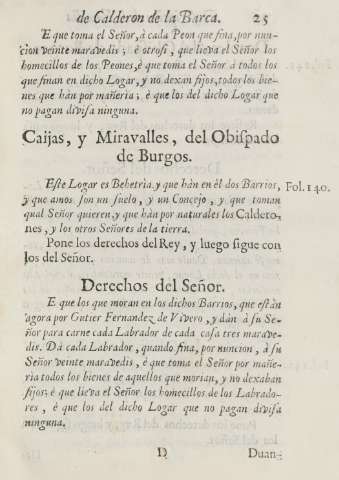 de Calderon de la Barca. 25
E que toma el Señor, à cada Peon que fina, por nun-
cion veinte maravedis; è otrosi, que lieva el Señor los
homecillos de los Peones, è que toma el Señor à todos los
que finan en dicho Logar, y no dexan fijos, todos los bie-
nes que hàn por mañeria; è que los del dicho Logar que
no pagan divisa ninguna.
Caijas, y Miravalles, del Obispado
de Burgos.
Este Logar es Behetria, y que hàn en èl dos Barrios, Fol. 140.
y que amos son un suelo, y un Concejo, y que toman
qual Señor quieren, y que hàn por naturales los Caldero-
nes, y los otros Señores de la tierra.
Pone los derechos del Rey, y luego sigue con
los del Señor.
Derechos del Señor.
E que los que moran en los dichos Barrios, que estàn
agora por Gutier Fernandez de Vivero, y dàn à su Se-
ñor para carne cada Labrador de cada casa tres marave-
dis. Dà cada Labrador, quando fina, por nuncion, à su
Señor veinte maravedis, è que toma el Señor por mañe-
ria todos los bienes de aquellos que morian, y no dexaban
fijos; è que lieva el Señor los homecillos de los Labrado-
res, è que los del dicho Logar que no pagan divisa
ninguna.
D Duan-